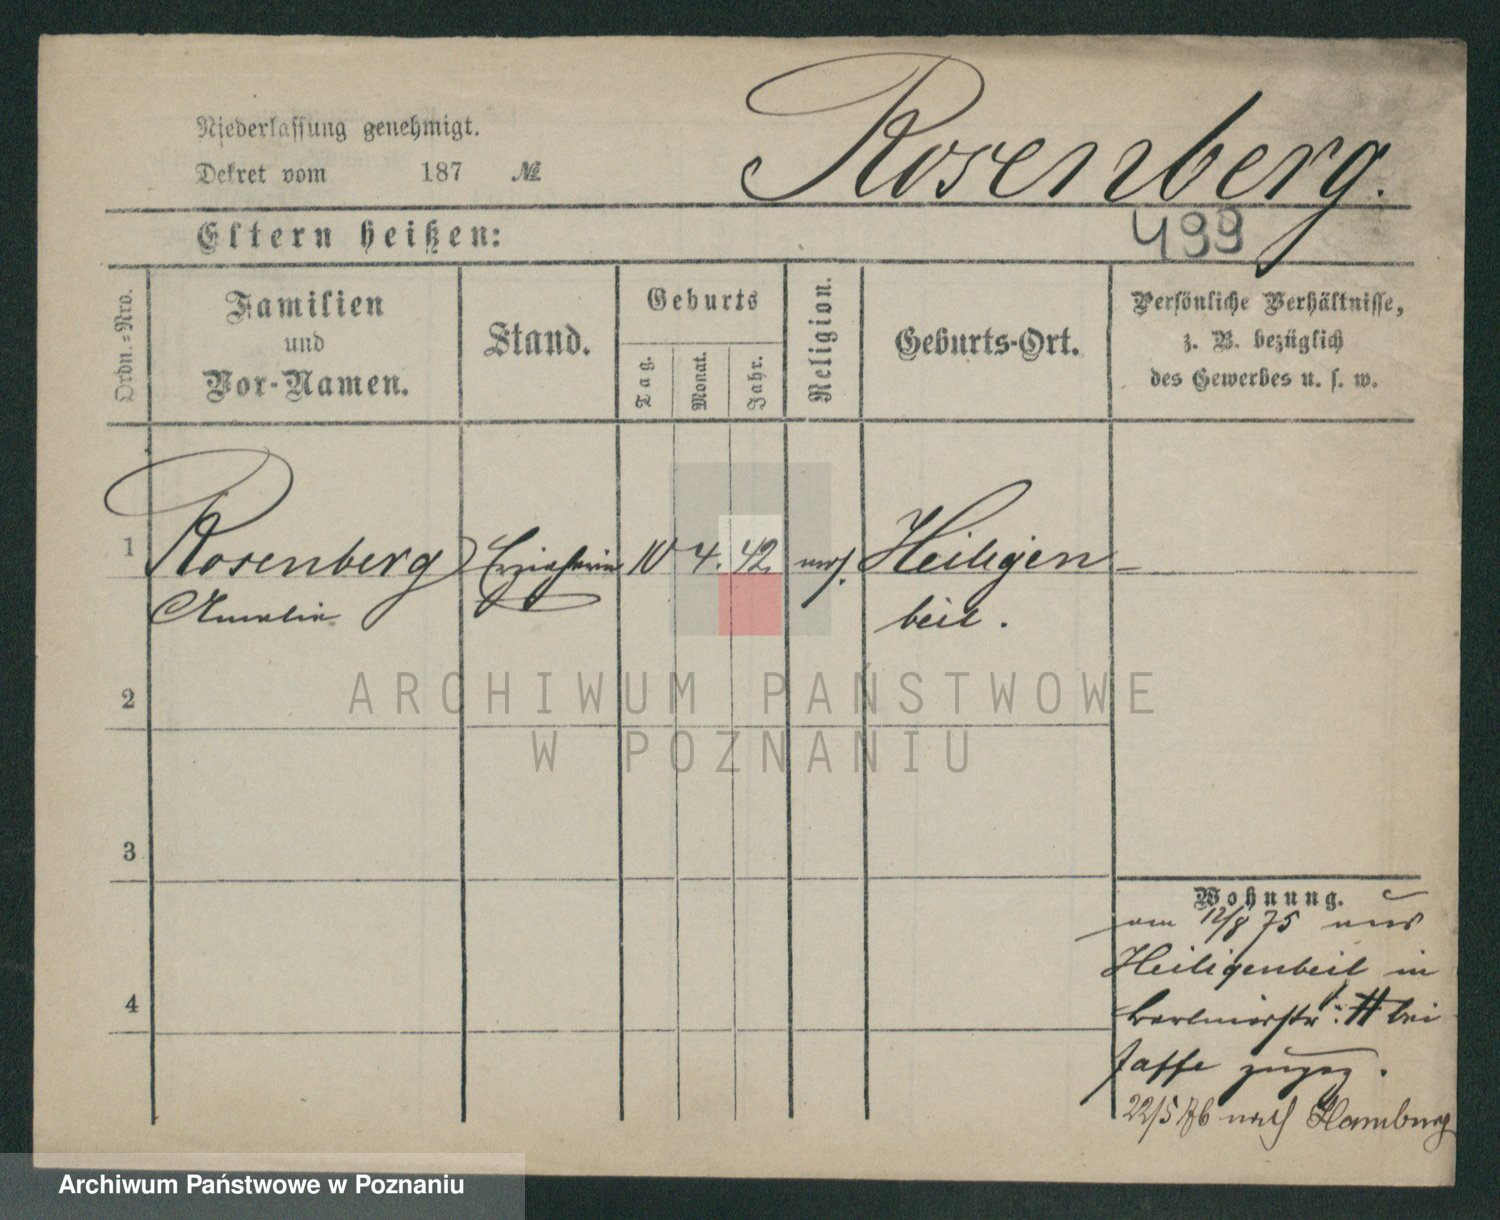 Niederlassung genehmigt.
Dekret vom 187 №
Rosenberg.
Eltern heißen:
499
Ordn.=Nro.
Familien
und
Vor-Namen.
Stand.
Geburts
Tag.
Monat.
Jahr.
Religion.
Geburts-Ort.
Persönliche Verhältnisse,
z. B. bezüglich
des Gewerbes u. s. w.
1 Rosenberg Erzieherin 10 4. 42. mos. Heiligen-
Amalie beil.
2
3
4
Wohnung.
am 12/8 75 aus
Heiligenbeil in
bei
Jaffe zugez.
22/5 76 nach Hamburg
ARCHIWUM PAŃSTWOWE
W POZNANIU
Archiwum Państwowe w Poznaniu